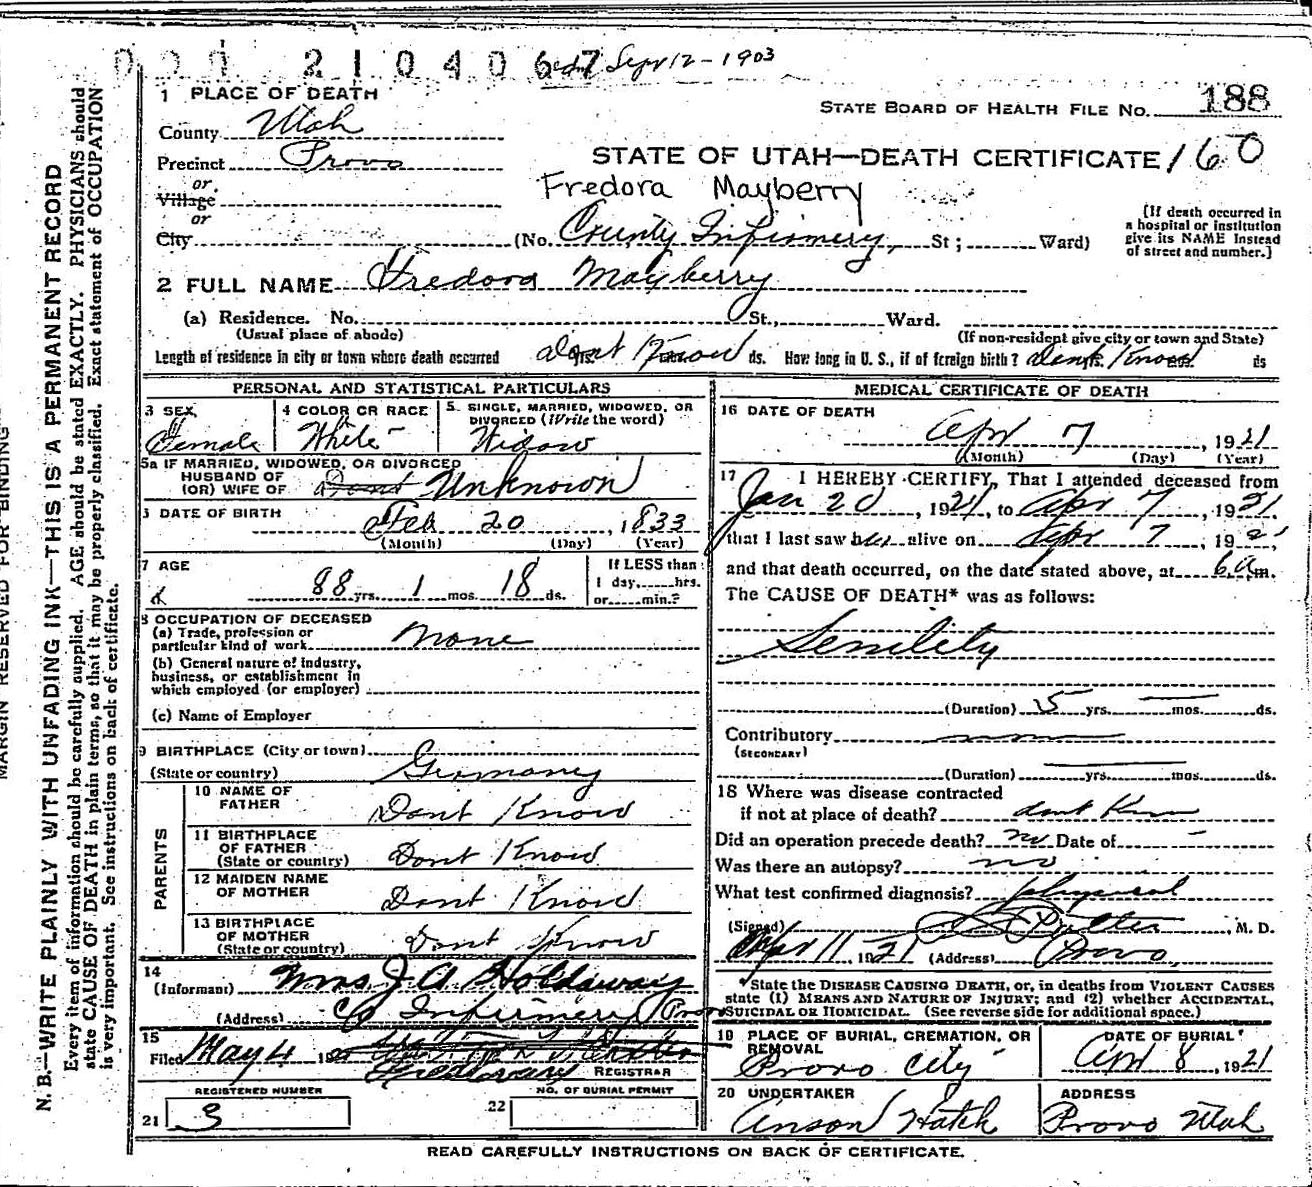 0 2 1 0 4 0 6 7 Sept 12 - 1903
1 PLACE OF DEATH
STATE BOARD OF HEALTH FILE No. 188
County Utah
Precinct Provo
STATE OF UTAH—DEATH CERTIFICATE 160
or
Village
Fredora Mayberry
or
City (No. County Infirmery, St; Ward)
(If death occurred in a hospital or institution give its NAME instead of street and number.)
2 FULL NAME Fredora Mayberry
(a) Residence. No. St., Ward.
(Usual place of abode) (If non-resident give city or town and State)
Length of residence in city or town where death occurred dont Know ds. How long in U. S., if of foreign birth? Dont Know ds
PERSONAL AND STATISTICAL PARTICULARS
3 SEX Female
4 COLOR OR RACE White
5 SINGLE, MARRIED, WIDOWED, OR DIVORCED (Write the word) Widow
5a IF MARRIED, WIDOWED, OR DIVORCED
HUSBAND OF
(OR) WIFE OF Dont Unknown
6 DATE OF BIRTH Feb 20, 1833
(Month) (Day) (Year)
7 AGE 88 yrs. 1 mos. 18 ds.
If LESS than 1 day, hrs. or min.?
8 OCCUPATION OF DECEASED
(a) Trade, profession or particular kind of work None
(b) General nature of industry, business, or establishment in which employed (or employer)
(c) Name of Employer
9 BIRTHPLACE (City or town)
(State or country) Germany
PARENTS
10 NAME OF FATHER Dont Know
11 BIRTHPLACE OF FATHER (State or country) Dont Know
12 MAIDEN NAME OF MOTHER Dont Know
13 BIRTHPLACE OF MOTHER (State or country) Dont Know
14
(Informant) Mrs J. A. Holdaway
(Address) Co Infirmery Provo
15
Filed May 4, 19
REGISTRAR
REGISTERED NUMBER
21 3
NO. OF BURIAL PERMIT
22
MEDICAL CERTIFICATE OF DEATH
16 DATE OF DEATH
Apr 7, 1921
(Month) (Day) (Year)
17 I HEREBY CERTIFY, That I attended deceased from
Jan 20, 1921, to Apr 7, 1921.
that I last saw her alive on Apr 7, 192
and that death occurred, on the date stated above, at 6 a m.
The CAUSE OF DEATH* was as follows:
Senility
(Duration) 5 yrs. — mos. ds.
Contributory
(SECONDARY)
(Duration) yrs. mos. ds.
18 Where was disease contracted
if not at place of death? dont Know
Did an operation precede death? no Date of —
Was there an autopsy? no
What test confirmed diagnosis? physical
(Signed) , M. D.
Apr 11 1921 (Address) Provo,
*State the DISEASE CAUSING DEATH, or, in deaths from VIOLENT CAUSES
state (1) MEANS AND NATURE OF INJURY; and (2) whether ACCIDENTAL,
SUICIDAL OR HOMICIDAL. (See reverse side for additional space.)
19 PLACE OF BURIAL, CREMATION, OR REMOVAL
Provo City
DATE OF BURIAL
Apr 8, 1921
20 UNDERTAKER
Anson Hatch
ADDRESS
Provo Utah
READ CAREFULLY INSTRUCTIONS ON BACK OF CERTIFICATE.
MARGIN RESERVED FOR BINDING
N. B.—WRITE PLAINLY WITH UNFADING INK—THIS IS A PERMANENT RECORD
Every item of information should be carefully supplied. AGE should be stated EXACTLY. PHYSICIANS should
state CAUSE OF DEATH in plain terms, so that it may be properly classified. Exact statement of OCCUPATION
is very important. See instructions on back of certificate.